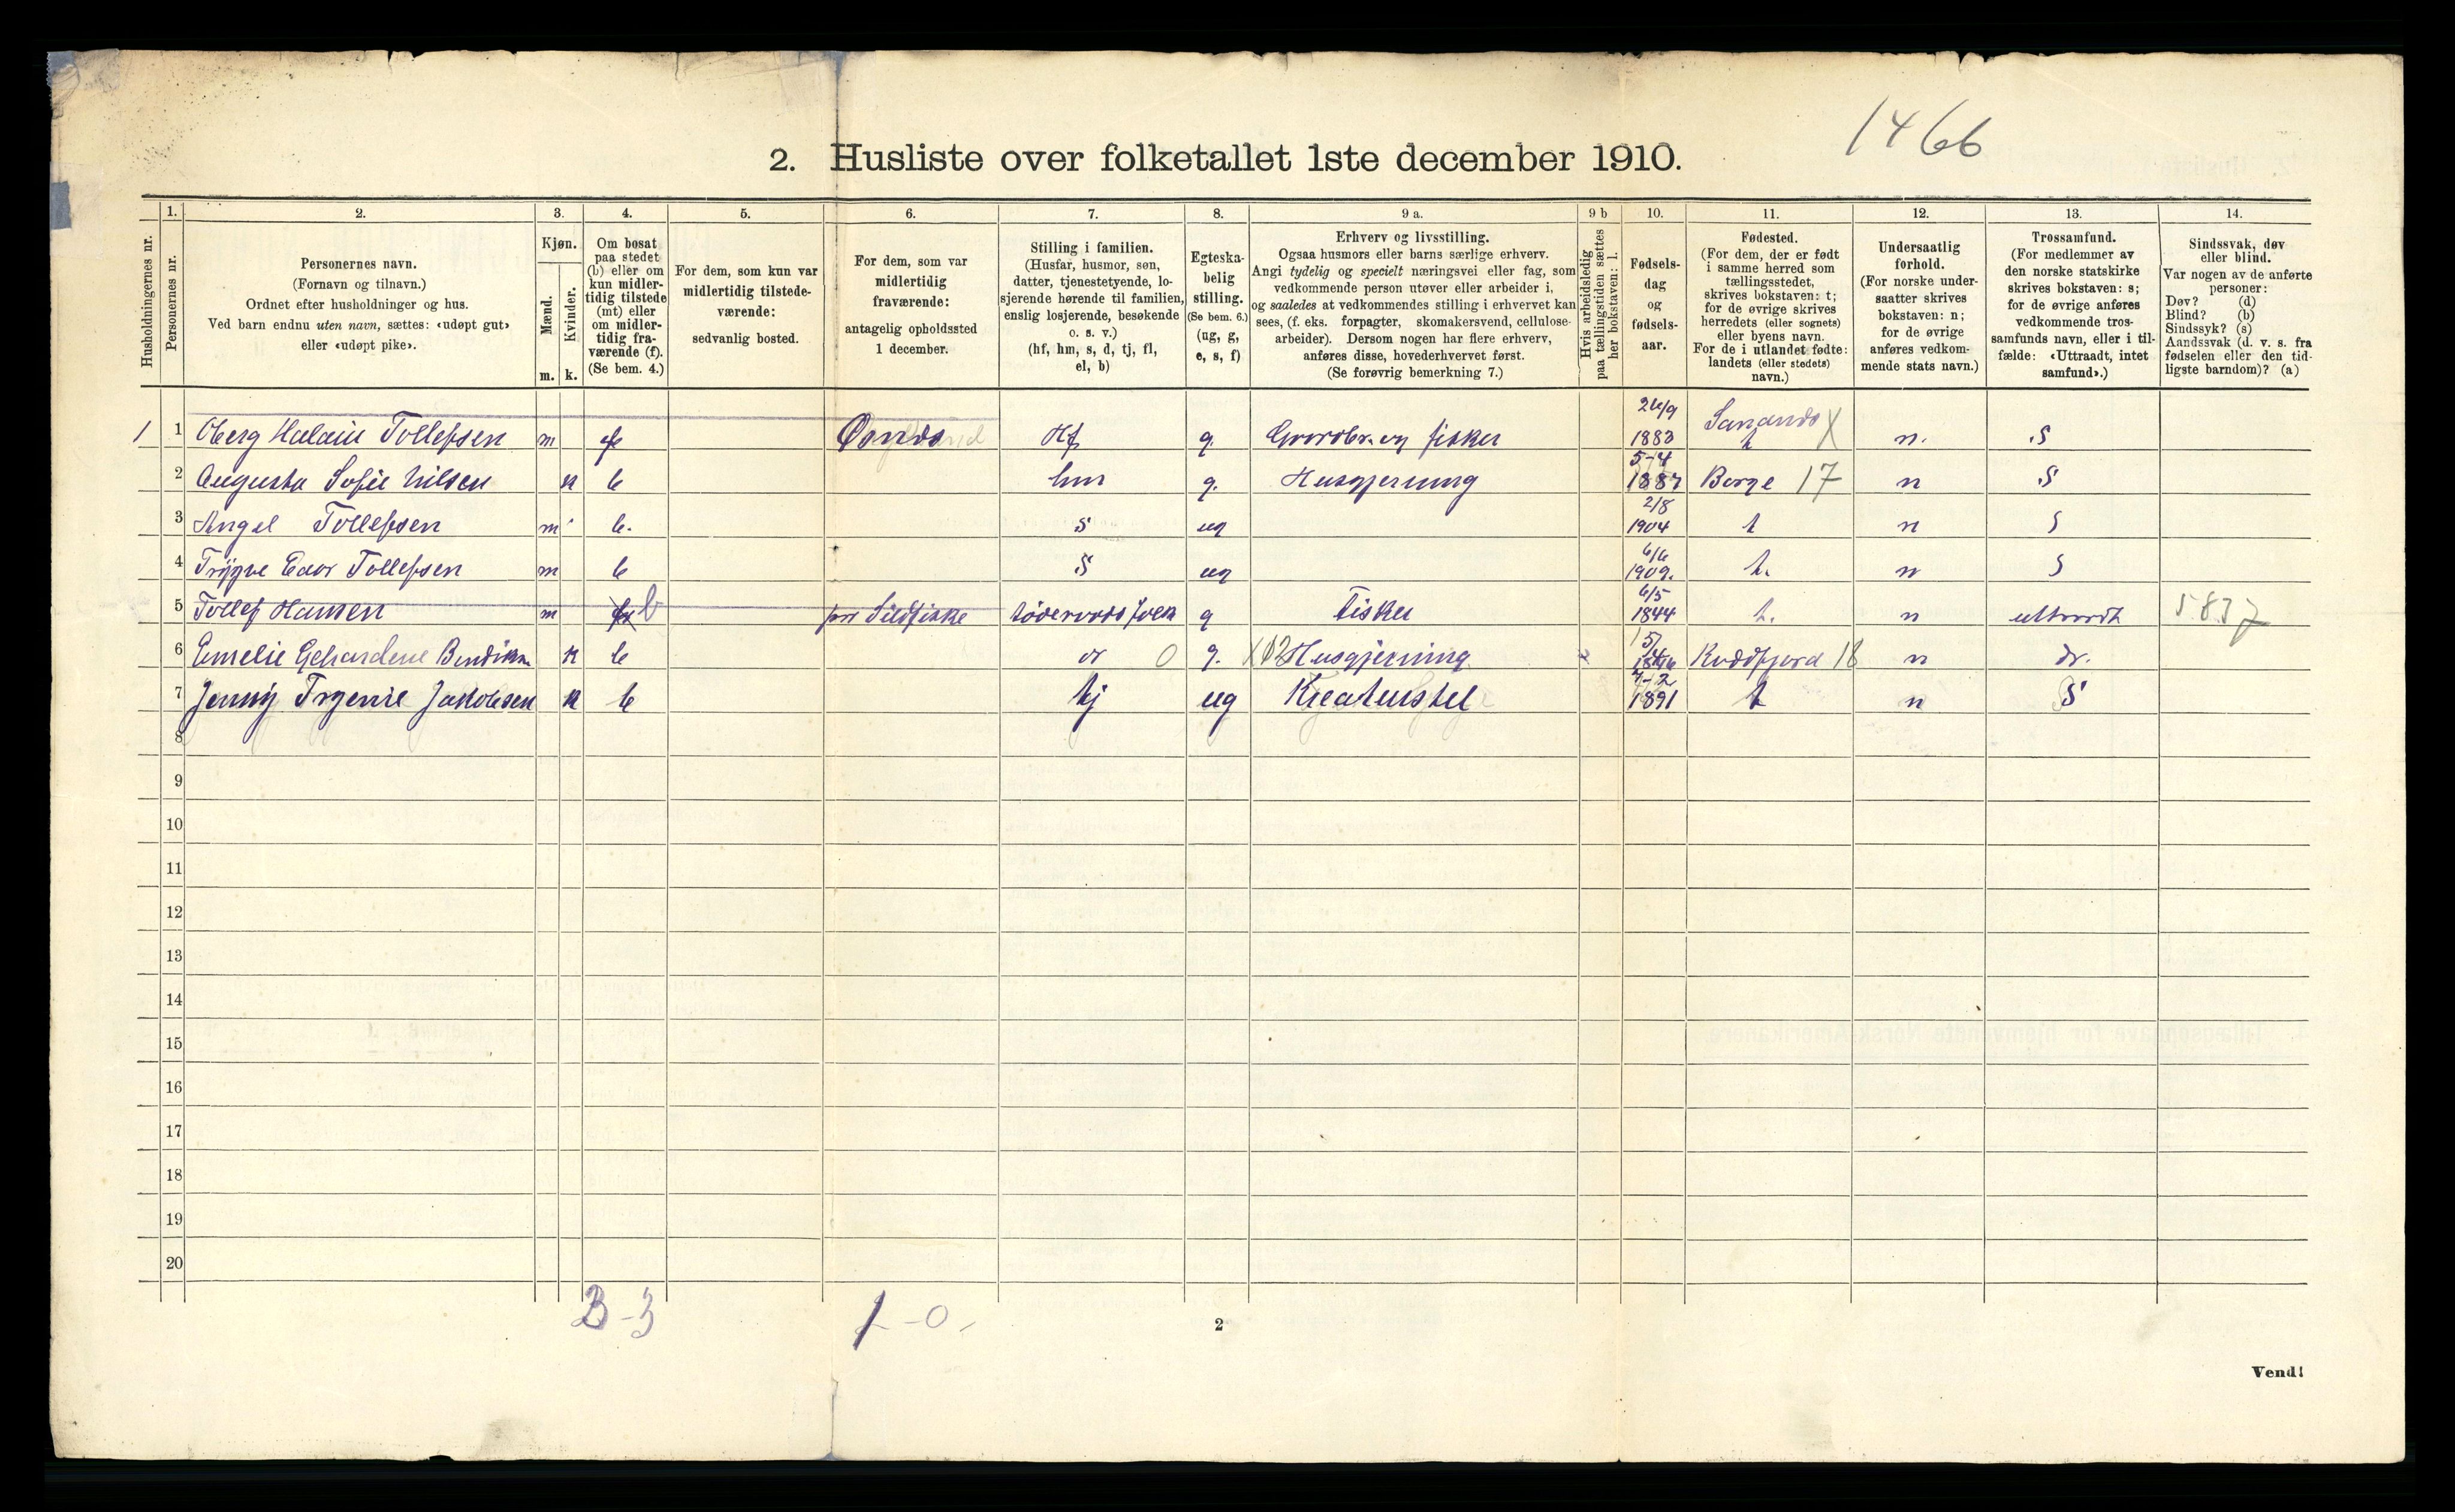 1466
2. Husliste over folketallet 1ste december 1910.
Husholdningernes nr.
1.
Personernes nr.
2.
Personernes navn.
(Fornavn og tilnavn.)
Ordnet efter husholdninger og hus.
Ved barn endnu uten navn, sættes: «udøpt gut»
eller «udøpt pike».
3.
Kjøn.
Mænd.
Kvinder.
m. k.
4.
Om bosat
paa stedet
(b) eller om
kun midler-
tidig tilstede
(mt) eller
om midler-
tidig fra-
værende (f).
(Se bem. 4.)
5.
For dem, som kun var
midlertidig tilstede-
værende:
sedvanlig bosted.
6.
For dem, som var
midlertidig
fraværende:
antagelig opholdssted
1 december.
7.
Stilling i familien.
(Husfar, husmor, søn,
datter, tjenestetyende, lo-
sjerende hørende til familien,
enslig losjerende, besøkende
o. s. v.)
(hf, hm, s, d, tj, fl,
el, b)
8.
Egteska-
belig
stilling.
(Se bem. 6.)
(ug, g,
e, s, f)
9 a.
Erhverv og livsstilling.
Ogsaa husmors eller barns særlige erhverv.
Angi tydelig og specielt næringsvei eller fag, som
vedkommende person utøver eller arbeider i,
og saaledes at vedkommendes stilling i erhvervet kan
sees, (f. eks. forpagter, skomakersvend, cellulose-
arbeider). Dersom nogen har flere erhverv,
anføres disse, hovederhvervet først.
(Se forøvrig bemerkning 7.)
9 b
Hvis arbeidsledig
paa tællingstiden sættes
her bokstaven: l.
10.
Fødsels-
dag
og
fødsels-
aar.
11.
Fødested.
(For dem, der er født
i samme herred som
tællingsstedet,
skrives bokstaven: t;
for de øvrige skrives
herredets (eller sognets)
eller byens navn.
For de i utlandet fødte:
landets (eller stedets)
navn.)
12.
Undersaatlig
forhold.
(For norske under-
saatter skrives
bokstaven: n;
for de øvrige
anføres vedkom-
mende stats navn.)
13.
Trossamfund.
(For medlemmer av
den norske statskirke
skrives bokstaven: s;
for de øvrige anføres
vedkommende tros-
samfunds navn, eller i til-
fælde: «Uttraadt, intet
samfund».)
14.
Sindssvak, døv
eller blind.
Var nogen av de anførte
personer:
Døv? (d)
Blind? (b)
Sindssyk? (s)
Aandssvak (d. v. s. fra
fødselen eller den tid-
ligste barndom)? (a)
1 1 Tollefsen m f Hf g. fisker 26/9 1883 t X n. S
2 Augusta Sofie Nilsen k b hm g. Husgjerning 5-4 1887 Borge 17 n S
3 Angel Tollefsen m b. s ug 2/8 1904 t n S
4 Trygve Tollefsen m b S ug 6/6 1909. t. n S
5 Tollef Hansen m b paa Sildfiske g Fisker 6/5 1844 t. n uttraadt 5.8.37
6 Emelie k b 0 g. Husgjerning 18 n do.
7 Jenny Jakobsen k b tj ug Kreaturstel 7-2 1891 t n S
8
9
10
11
12
13
14
15
16
17
18
19
20
3-3 1-0.
2
Vend!